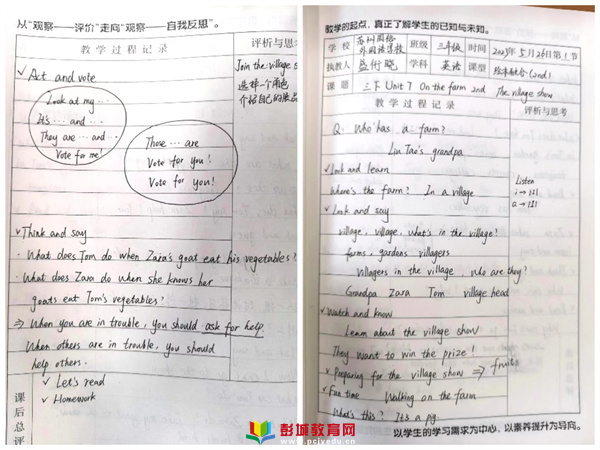 从"观察——评价"走向"观察——自我反思"。
教学过程记录
评析与思
✓ Act and vote
Look at my ...
It's ... and ...
They are ... and ...
Vote for me!
Those ... are
Vote for you!
Vote for you!
Join the village s
选择一个角色
介绍自己的
✓ Think and say
· What does Tom do when Zara's goat eat his vegetables?
· What does Zara do when she knows her
goats eat Tom's vegetables?
⇒ When you are in trouble, you should ask for help.
When others are in trouble, you should
help others.
✓ Let's read
✓ Homework
课后总评
教学的起点，真正了解学生的已知与未知。
学校 苏州国际外国语学校 班级 三年级 时间 2023年5月26日第1节
执教人 学科 英语 课型 绘本融合(2nd)
课题 三下 Unit 7 On the farm 2nd The village show
教学过程记录
评析与思考
Q: Who has a farm?
Liu Tao's grandpa
✓ Look and learn
Where's the farm? In a village
✓ Look and say
village, village, what's in the village?
farms, gardens villagers
Villagers in the village, who are they?
Grandpa Zara Tom village head
Listen
i → /ɪ/
✓ Watch and know
Learn about the village show
They want to win the prize!
✓ Preparing for the village show ⇒ fruits
✓ Fun time Walking on the farm
What's this? It's a pig.
以学生的学习需求为中心，以素养提升为导向。
彭城教育网
www.pcjyedu.cn